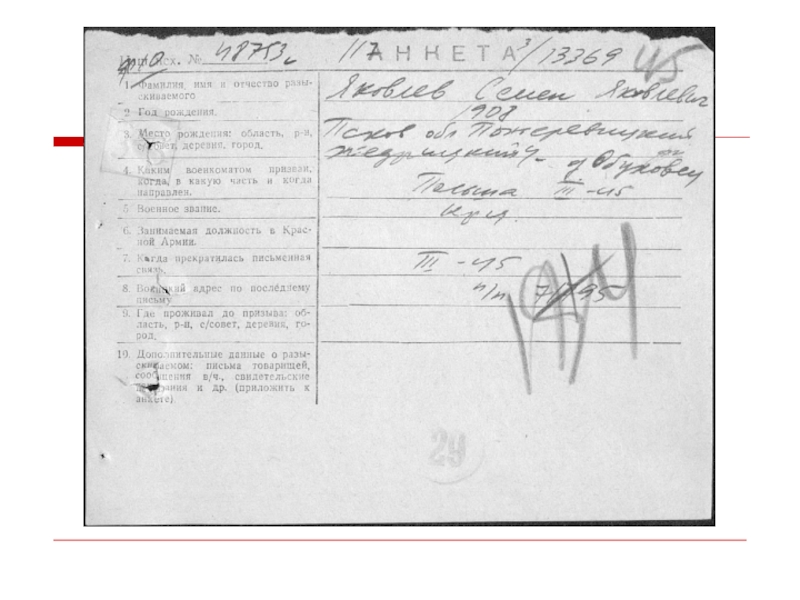 исх. № 48753 117 АНКЕТА 3/13369 45
1. Фамилия, имя и отчество разы-
скиваемого
Яковлев Семен Яковлевич
2. Год рождения.
1908
3. Место рождения: область, р-н,
с/совет, деревня, город.
Псков обл Пожеревицкий
д Обуковец
4. Каким военкоматом призван,
когда, в какую часть и когда
направлен.
Польша III-45
5. Военное звание.
кр-ц.
6. Занимаемая должность в Крас-
ной Армии.
7. Когда прекратилась письменная
связь.
III-45
8. Воинский адрес по последнему
письму
п/п
9. Где проживал до призыва: об-
ласть, р-н, с/совет, деревня, го-
род.
10. Дополнительные данные о разы-
скиваемом: письма товарищей,
сообщения в/ч., свидетельские
показания и др. (приложить к
анкете)
29